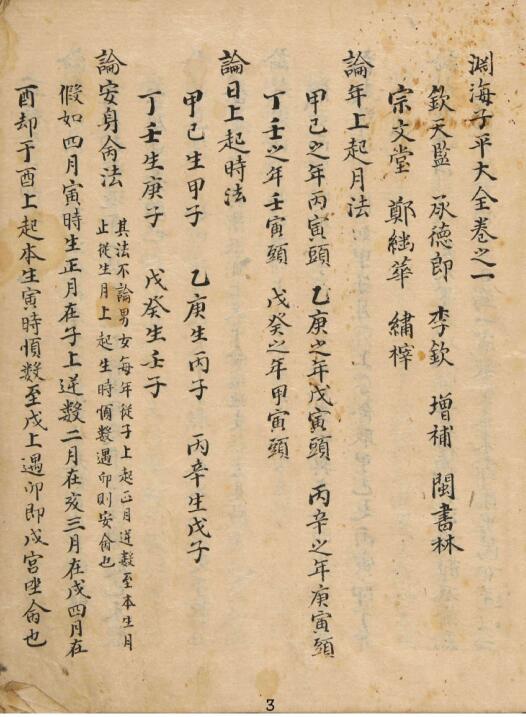 渊海子平大全卷之一
欽天監　承德郎　李欽　增補　閩書林
宗文堂　鄭繼華　繡梓
論年上起月法
甲己之年丙寅頭　乙庚之年戊寅頭　丙辛之年庚寅頭
丁壬之年壬寅頭　戊癸之年甲寅頭
論日上起時法
甲己生甲子　乙庚生丙子　丙辛生戊子
丁壬生庚子　戊癸生壬子
論安身命法
其法不論男女每年從子上起正月逆數至本生月
止從生月上起生時順數遇卯則安命也
假如四月寅時生正月在子上逆數二月在亥三月在戌四月在
酉却于酉上起本生寅時順数至戌上遇卯即戌宮坐命也
3